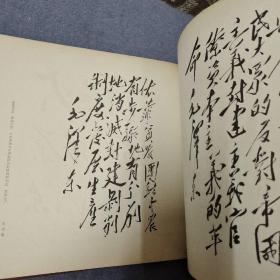 民大众的反对帝国
主义封建主义官
僚资本主义的革
命 毛泽东
依靠贫农团结中农
有步骤地有分别
地消灭封建剥削
制度发展生产
毛泽东